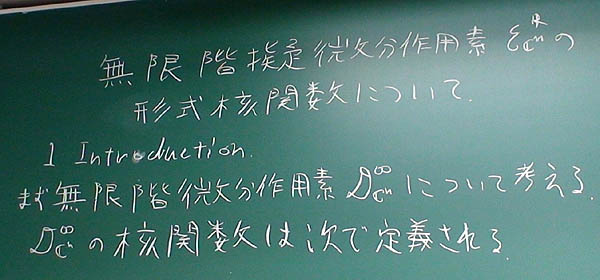 無限階擬微分作用素 ℰ^ℝ_ℂⁿ の
形式核関数について.
1 Introduction.
まず無限階微分作用素 𝒟^∞_ℂⁿ について考える.
𝒟^∞_ℂⁿ の核関数は次で定義される.